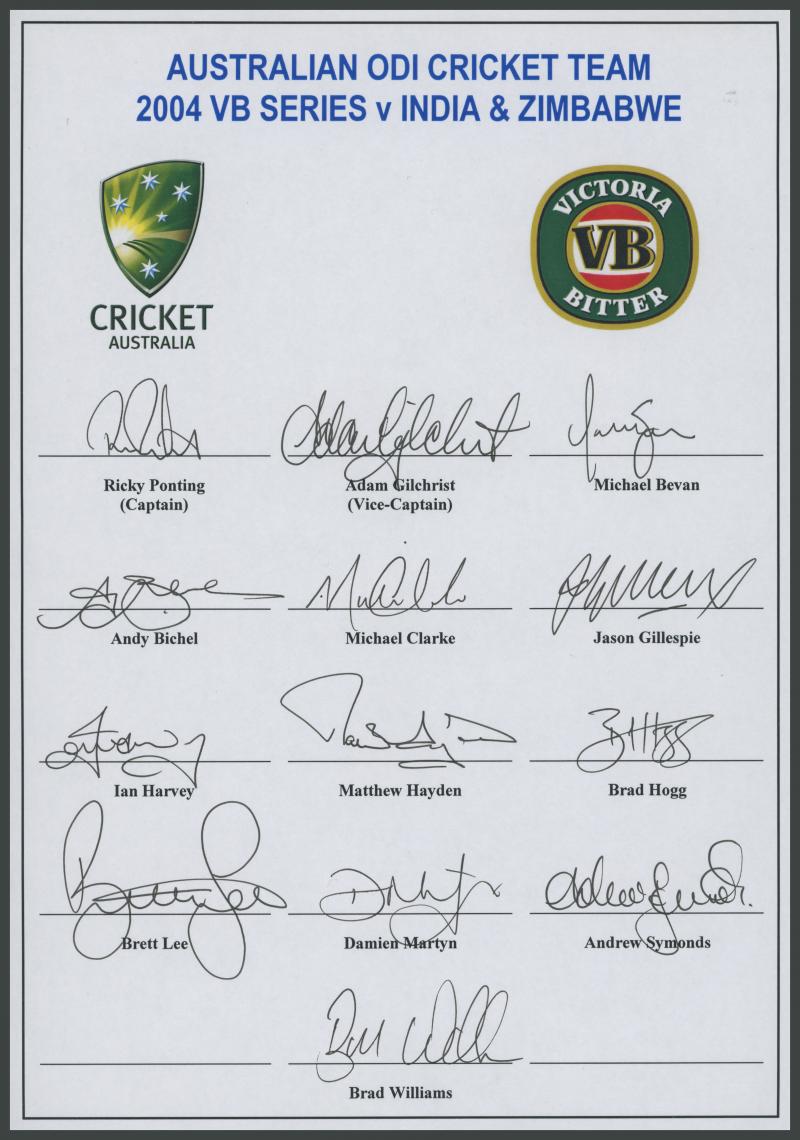 AUSTRALIAN ODI CRICKET TEAM
2004 VB SERIES v INDIA & ZIMBABWE
CRICKET
AUSTRALIA
VICTORIA
VB
BITTER
Ricky Ponting
(Captain)
Adam Gilchrist
Adam Gilchrist
(Vice-Captain)
Michael Bevan
Andy Bichel
Michael Clarke
Jason Gillespie
Ian Harvey
Matthew Hayden
Brad Hogg
Brett Lee
Damien Martyn
Andrew Symonds
Brad Williams